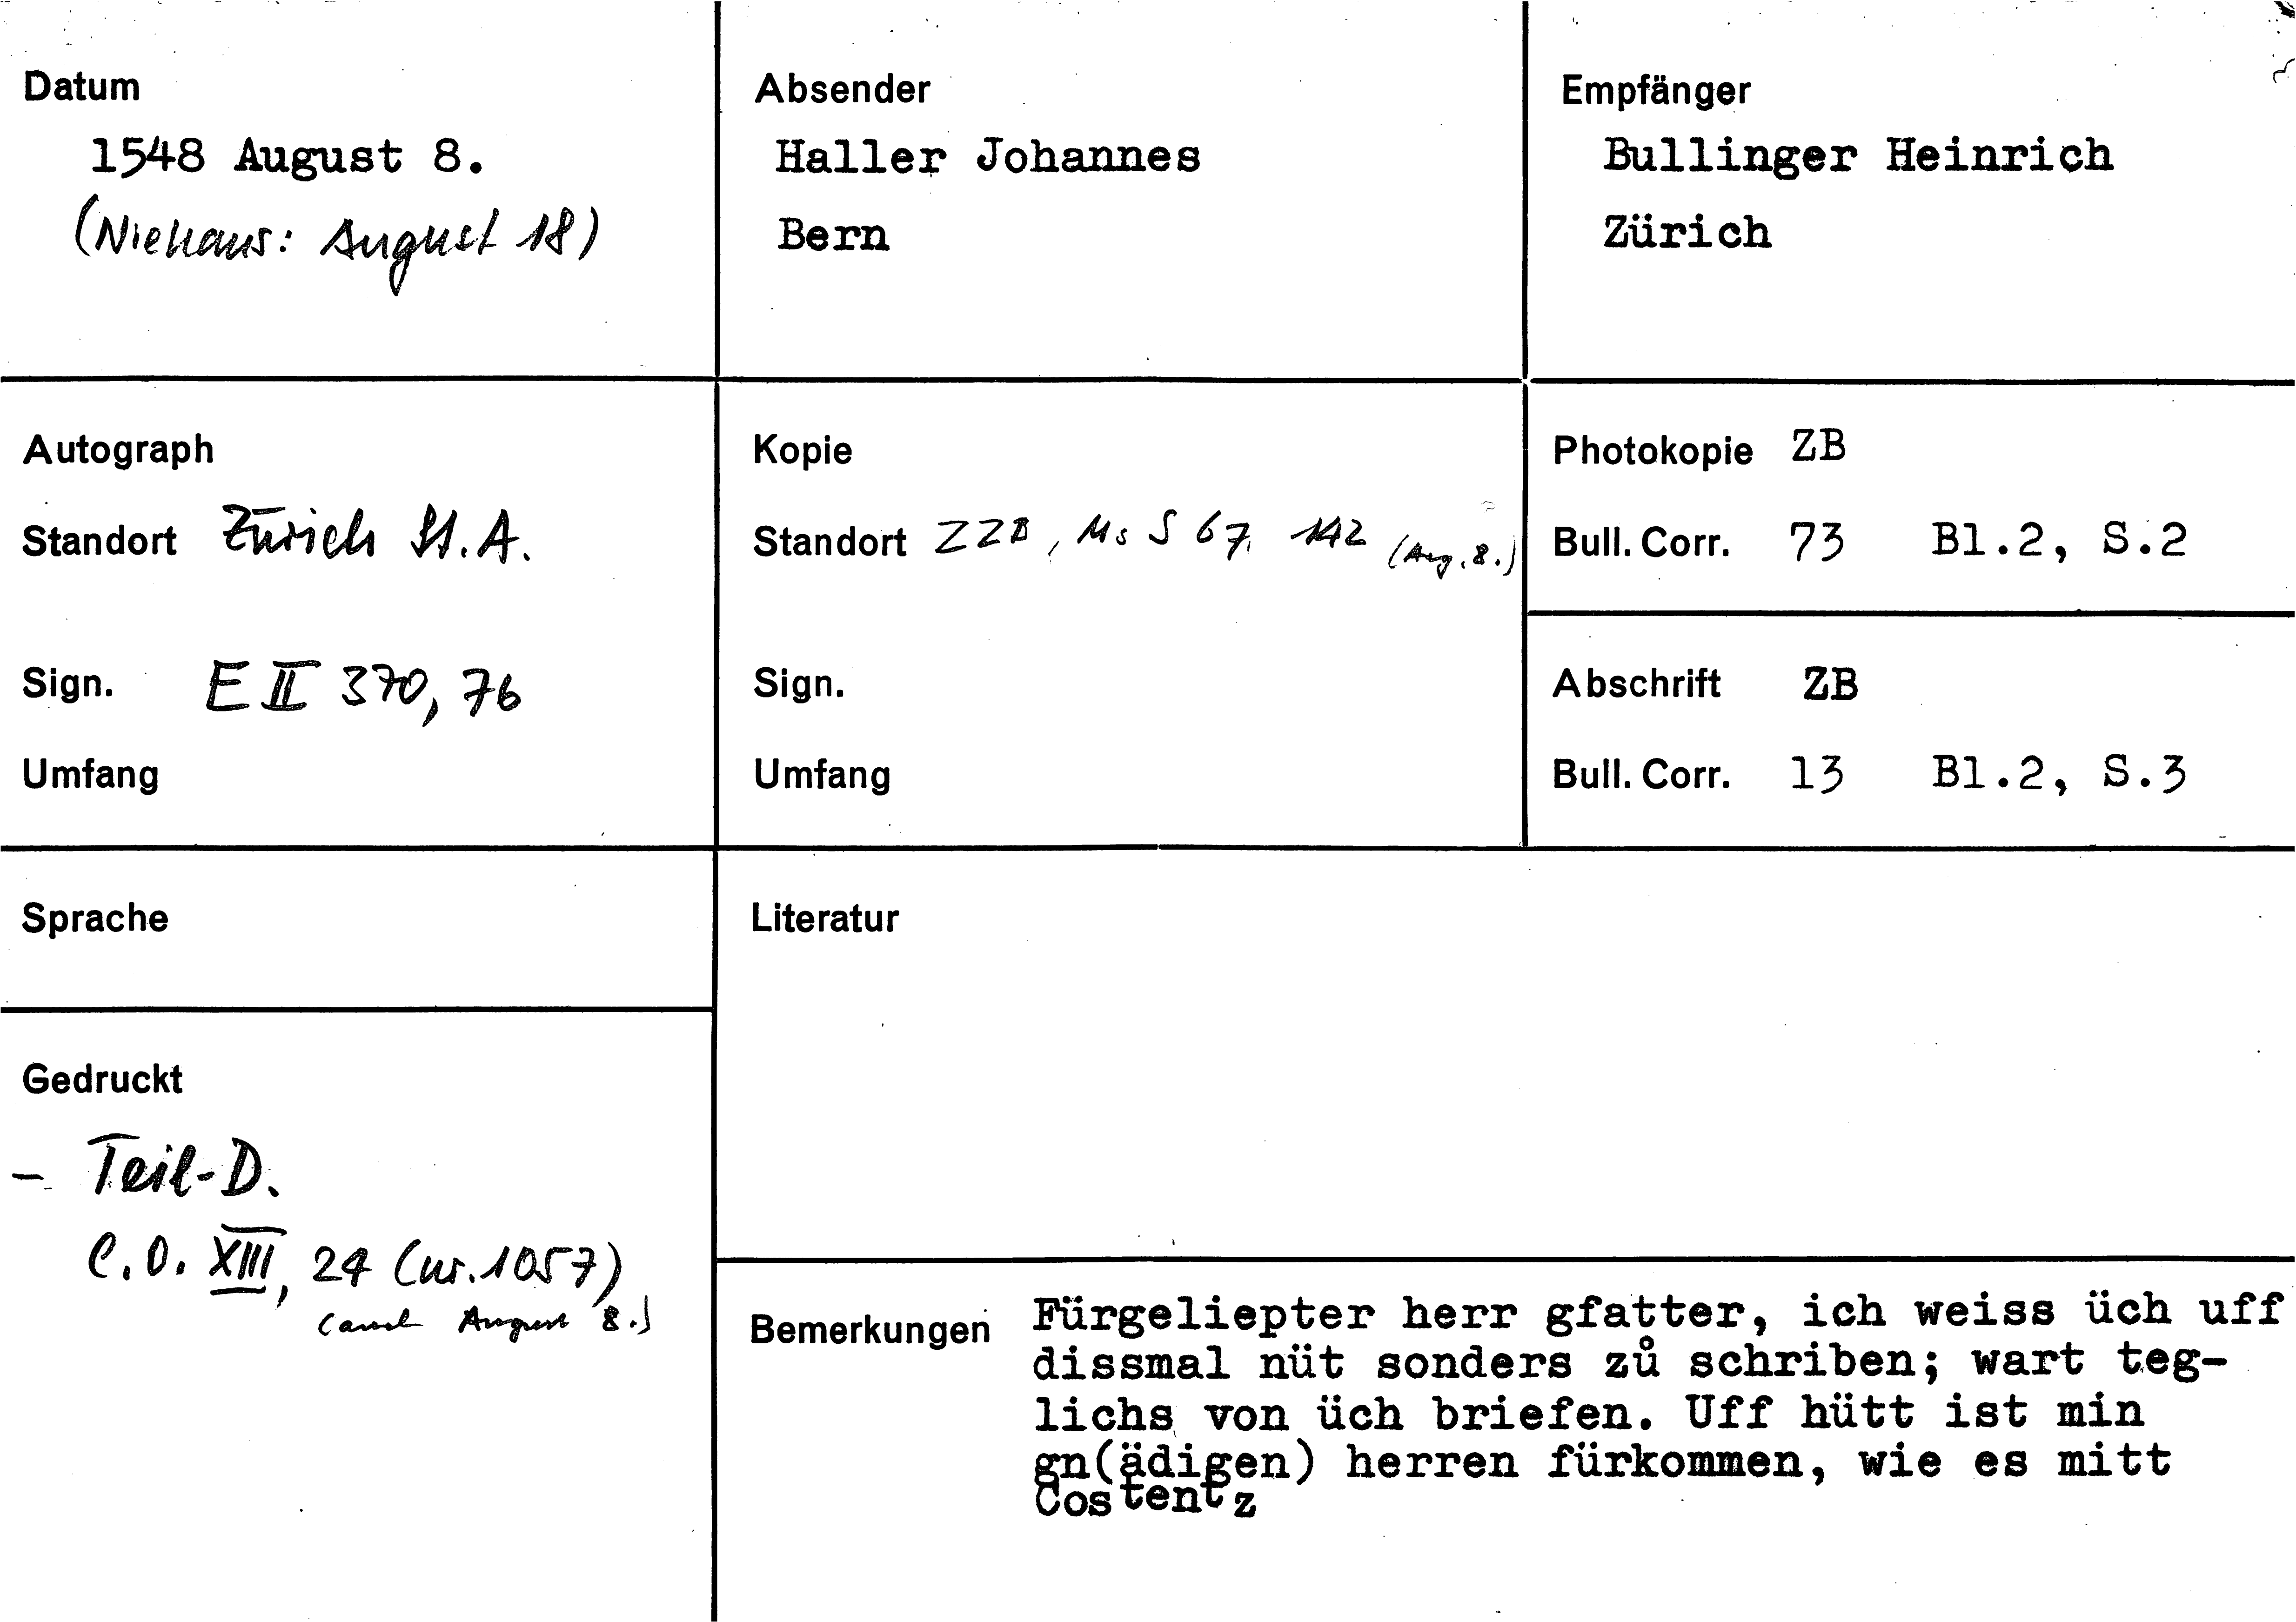 Datum
1548 August 8.
(Niehaus: August 18)
Absender
Haller Johannes
Bern
Empfänger
Bullinger Heinrich
Zürich
Autograph
Standort Zürich St.A.
Sign. E II 370, 76
Umfang
Kopie
Standort ZZB, Ms S 67, 142 (Aug. 8.)
Sign.
Umfang
Photokopie ZB
Bull. Corr. 73 Bl.2, S.2
Abschrift ZB
Bull. Corr. 13 Bl.2, S.3
Sprache
Literatur
Gedruckt
- Teil-D.
C.O. XIII, 24 (nr. 1057)
(auch August 8.)
Bemerkungen Fürgeliepter herr gfatter, ich weiss üch uff
dissmal nüt sonders zů schriben; wart teg-
lichs von üch briefen. Uff hütt ist min
gn(ädigen) herren fürkommen, wie es mitt
Costentz